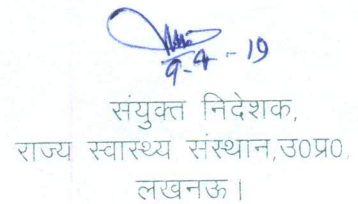 9-4-19
संयुक्त निदेशक,
राज्य स्वास्थ्य संस्थान,उ0प्र0,
लखनऊ।